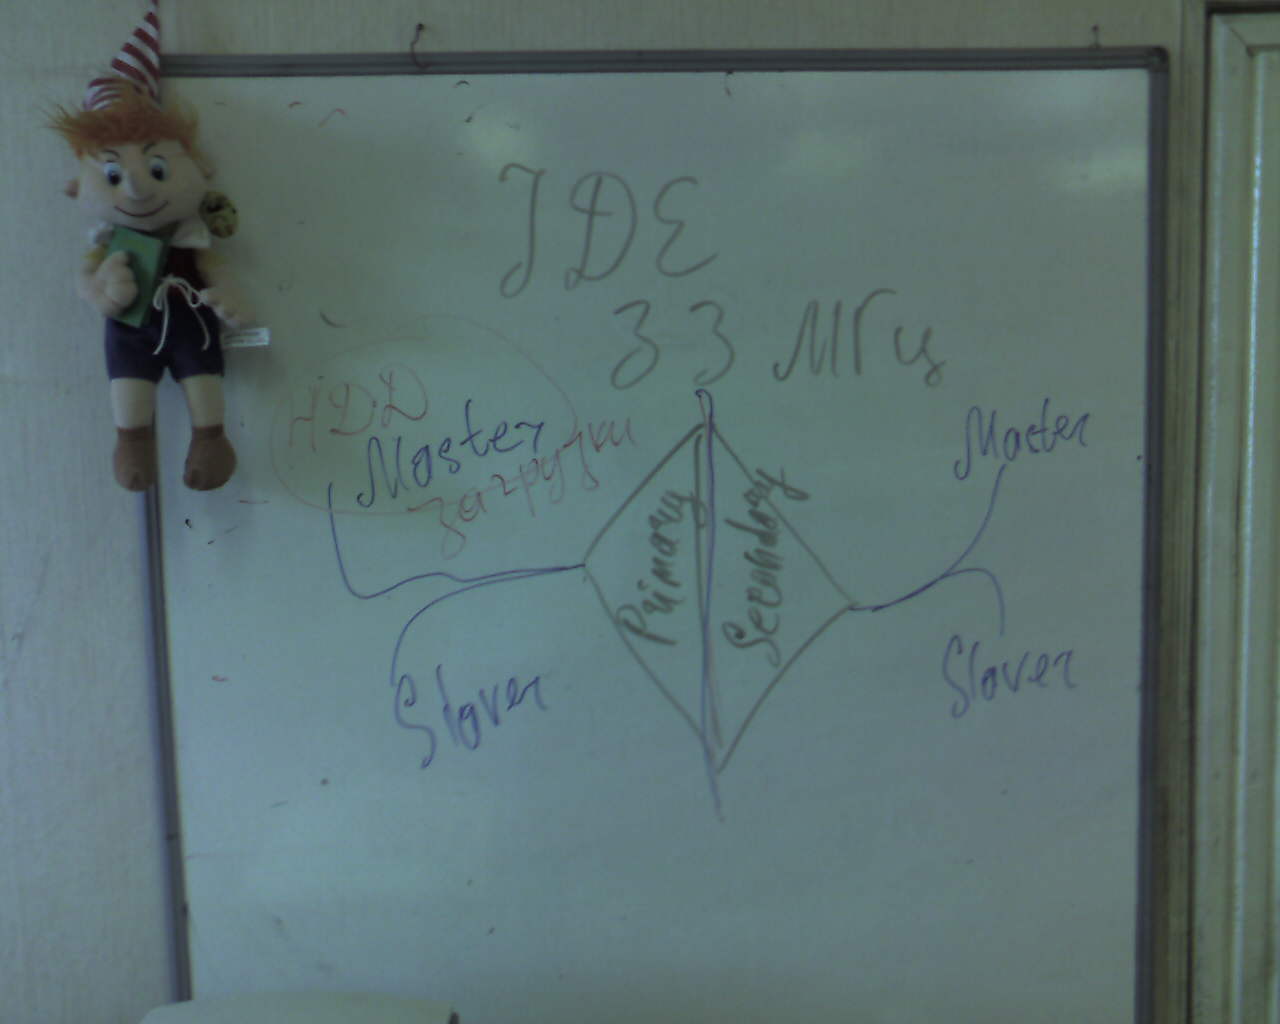 IDE
33 МГц
HDD
Master
загрузки
Master
Primary
Secondary
Slaver
Slaver